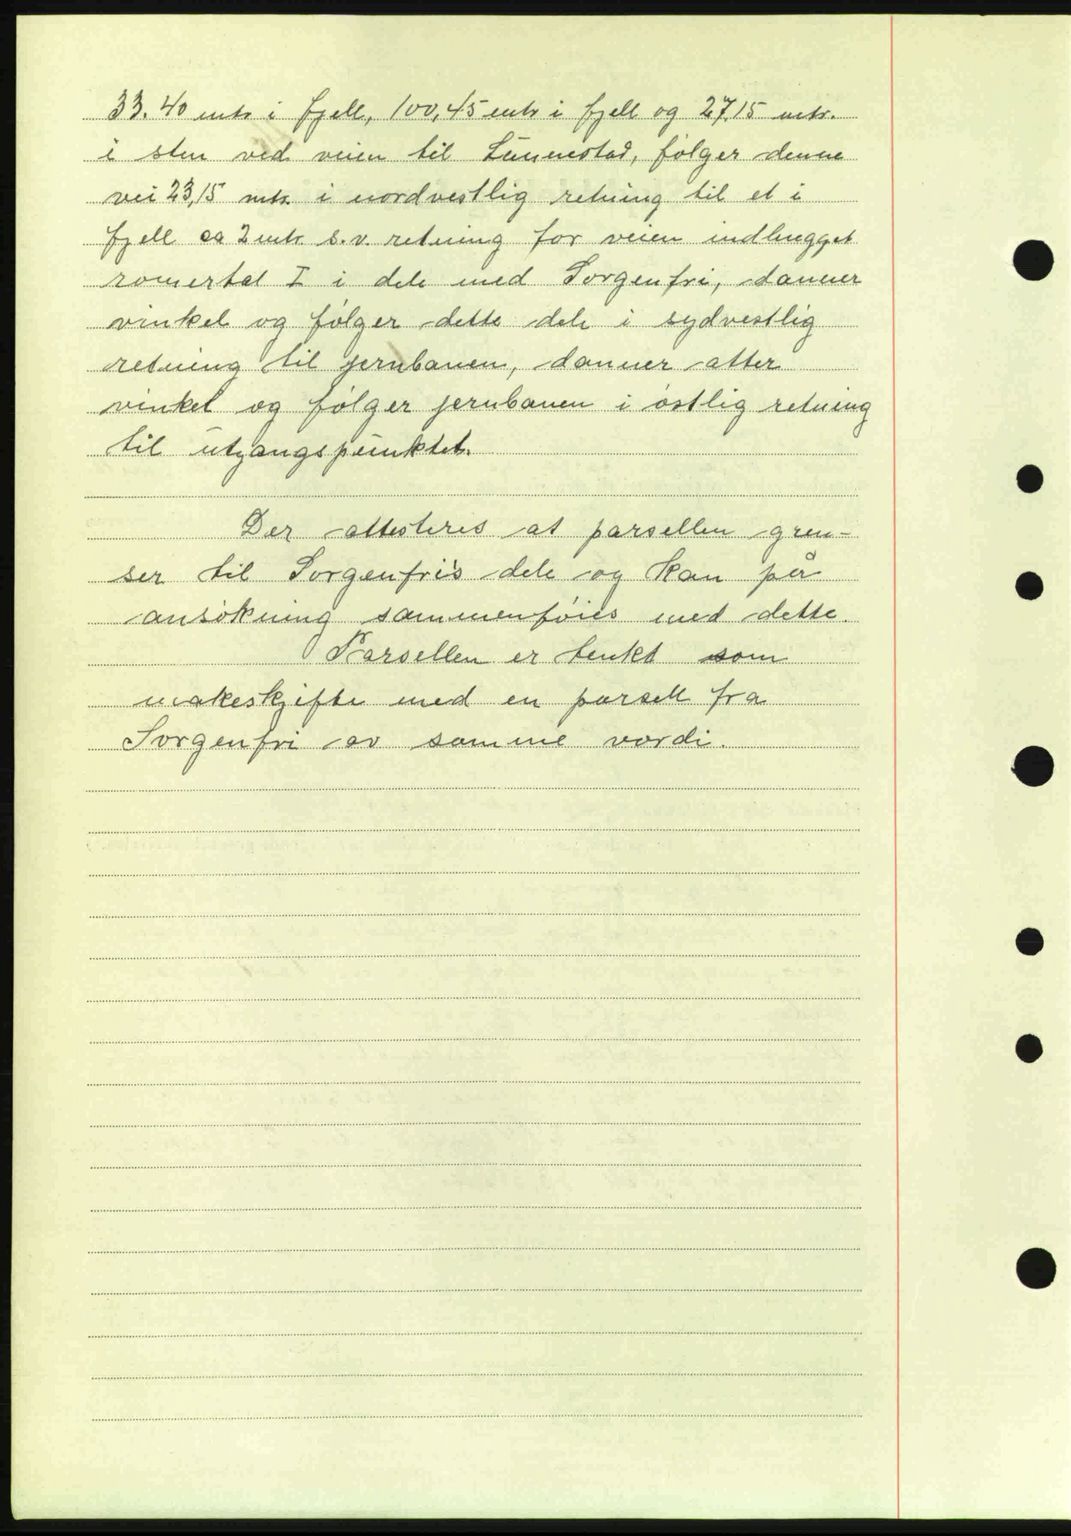 33.40 mtr i fjell, 100,45 mtr i fjell og 27,15 mtr.
i sten ved veien til Lunnestad, følger denne
vei 23,15 mtr. i nordvestlig retning til et i
fjell ca 2 mtr s.v. retning for veien indhugget
romertal I i dele med Sorgenfri, danner
vinkel og følger dette dele i sydvestlig
retning til jernbanen, danner atter
vinkel og følger jernbanen i østlig retning
til utgangspunktet.
Der attesteres at parsellen gren-
ser til Sorgenfri's dele og kan på
ansøkning sammenføies med dette.
Parsellen er tenkt som
makeskifte med en parsell fra
Sorgenfri av samme verdi.